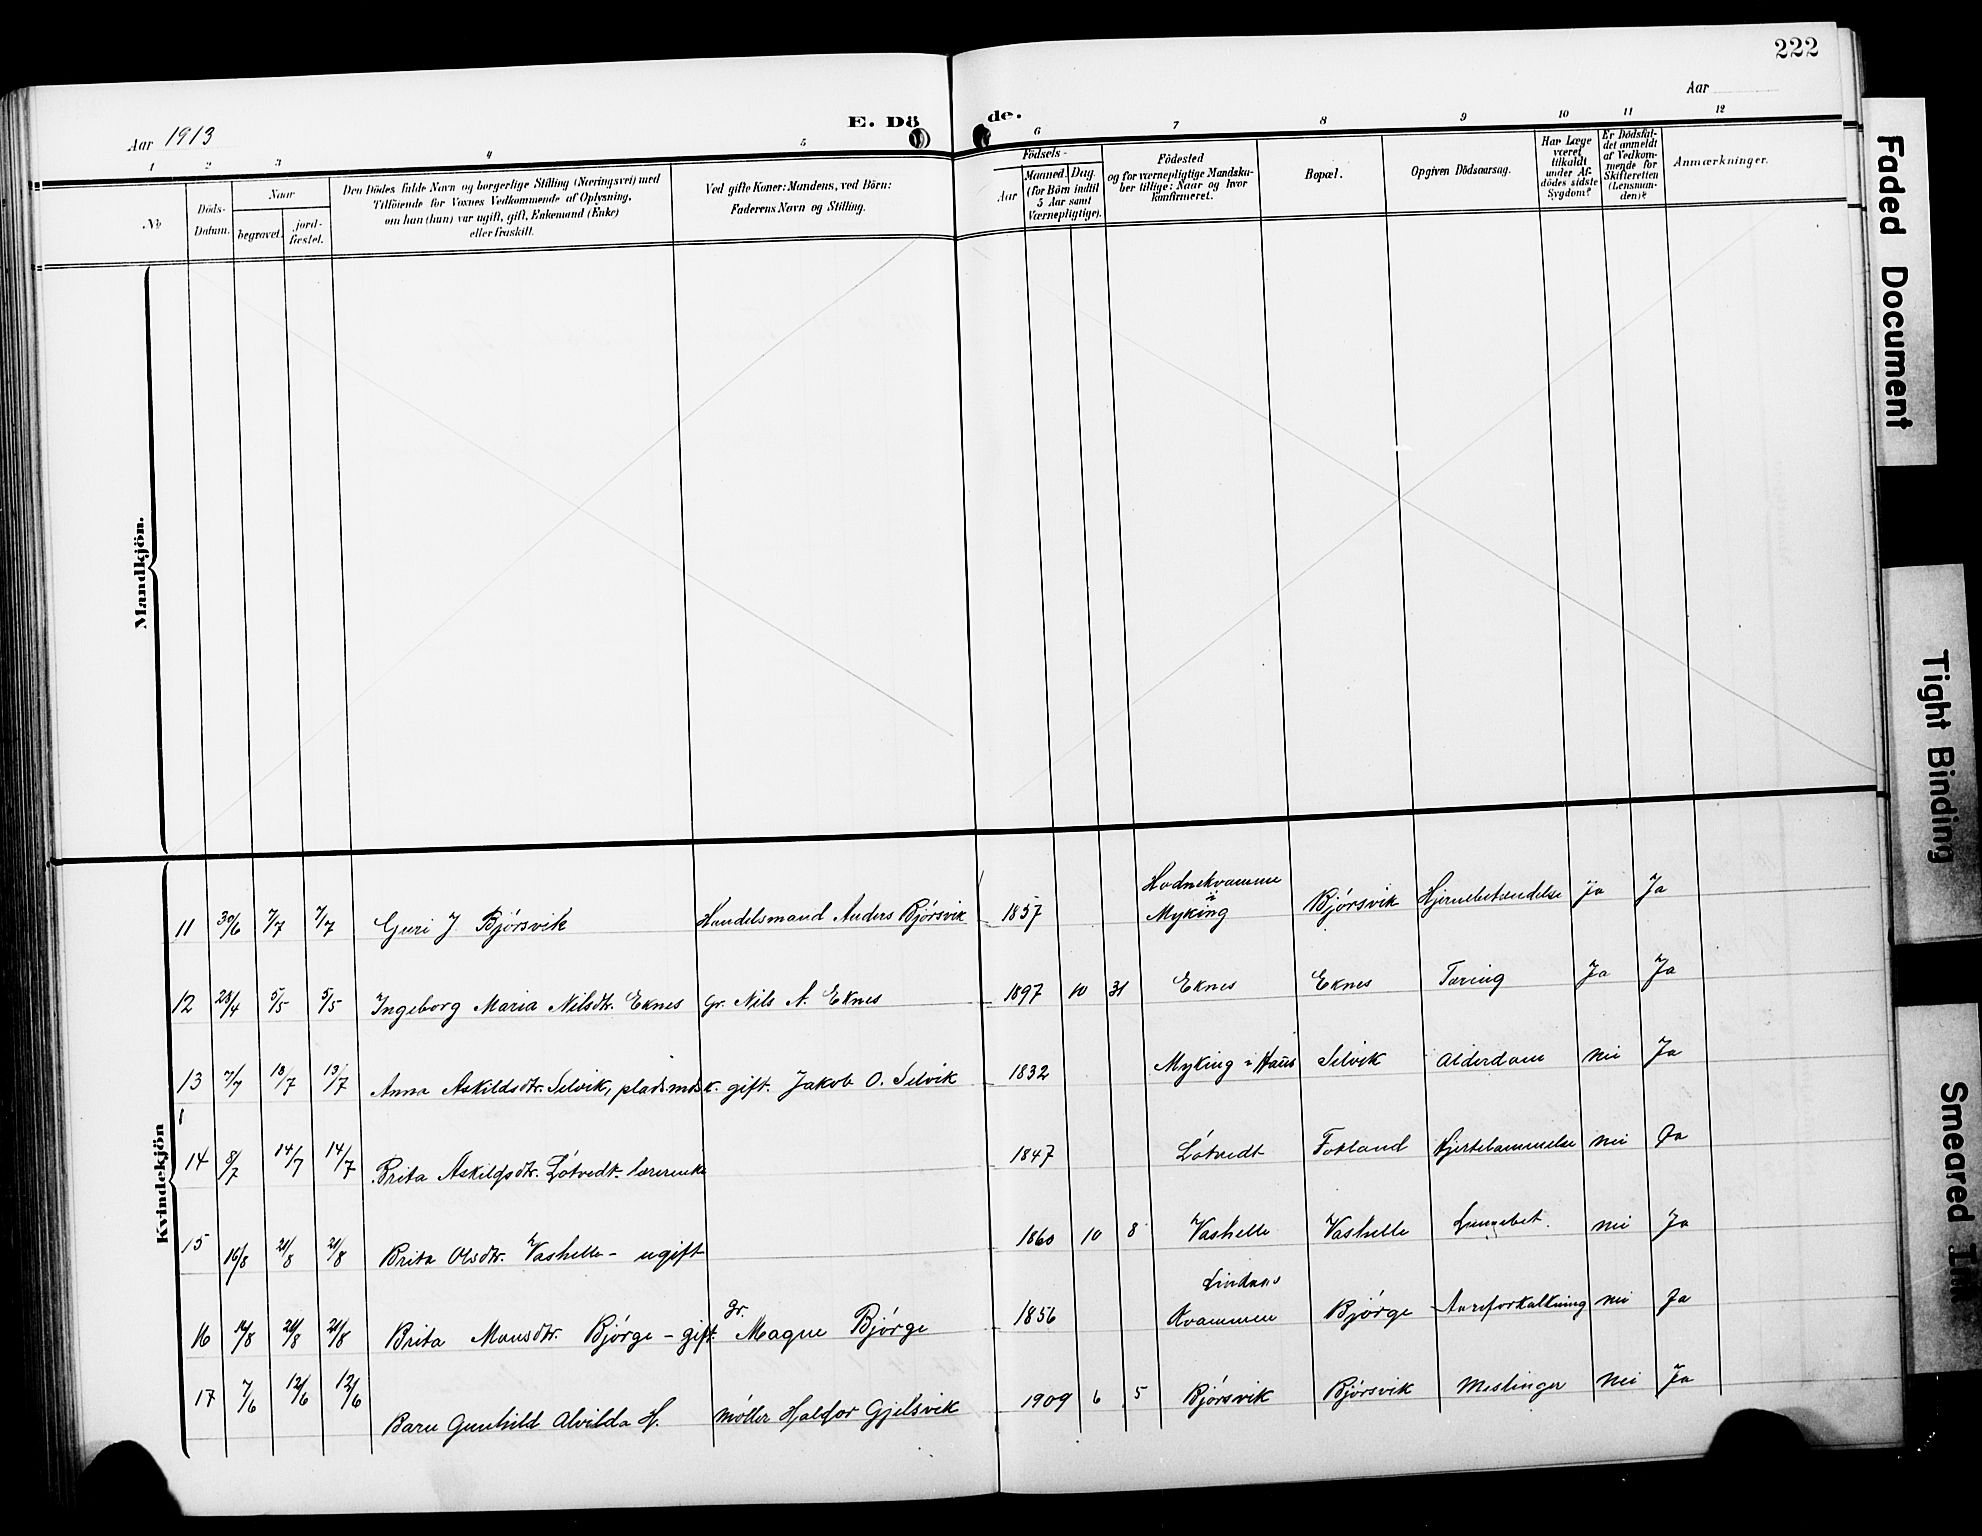 222
Aar 1913
E. Dö
de.
Aar
1 2 3 4 5 6 7 8 9 10 11 12
No
Döds-
Datum.
Naar
begravet.
jord-
fæstet.
Den Dödes fulde Navn og borgerlige Stilling (Næringsvei) med
Tilföiende for Voxnes Vedkommende af Oplysning,
om han (hun) var ugift, gift, Enkemand (Enke)
eller fraskilt.
Ved gifte Koner: Mandens, ved Börn:
Faderens Navn og Stilling.
Födsels-
Aar
Maaned. Dag.
(for Börn indtil
5 Aar samt
Værnepligtige).
Födested
og for værnepligtige Mandska-
ber tillige: Naar og hvor
konfirmeret.
Bopæl.
Opgiven Dödsaarsag.
Har Læge
været
tilkaldt
under Af-
dödes sidste
Sygdom?
Er Dödsfal-
det anmeldt
af Vedkom-
mende for
Skifteretten
(Lensman-
den)?
Anmærkninger.
Mandkjön.
Kvindekjön
11 30/6 7/7 7/7 Guri J Bjørsvik Handelsmand Anders Bjørsvik 1857 Hodnekvamme i Myking Bjørsvik Hjernebetændelse Ja Ja
12 28/4 5/5 5/5 Ingeborg Maria Nilsdtr. Eknes Gr. Nils A. Eknes 1897 10 31 Eknes Eknes Tæring Ja Ja
13 7/7 13/7 13/7 Anna Askildsdtr. Selvik, pladsmdsk. gift. Jakob O. Selvik 1832 Myking i Haus Selvik Alderdom nei Ja
14 8/7 14/7 14/7 Brita Askildsdtr. Løtvedt lærerenke 1847 Løtvedt Fotland Hjertelammelse nei Ja
15 16/8 21/8 21/8 Brita Olsdtr. Vashelle - ugift 1860 10 8 Vashelle Vashelle Lungebet. nei Ja
16 14/8 21/8 21/8 Brita Monsdtr. Bjørge - gift. Gr. Magne Bjørge 1856 Lindaas Kvammen Bjørge Aareforkalkning nei Ja
17 7/6 12/6 12/6 Barn Gunhild Alvilda H. Møller Haldor Gjelsvik 1909 6 5 Bjørsvik Bjørsvik Meslinger nei Ja
Faded Document
Tight Binding
Smeared Ink